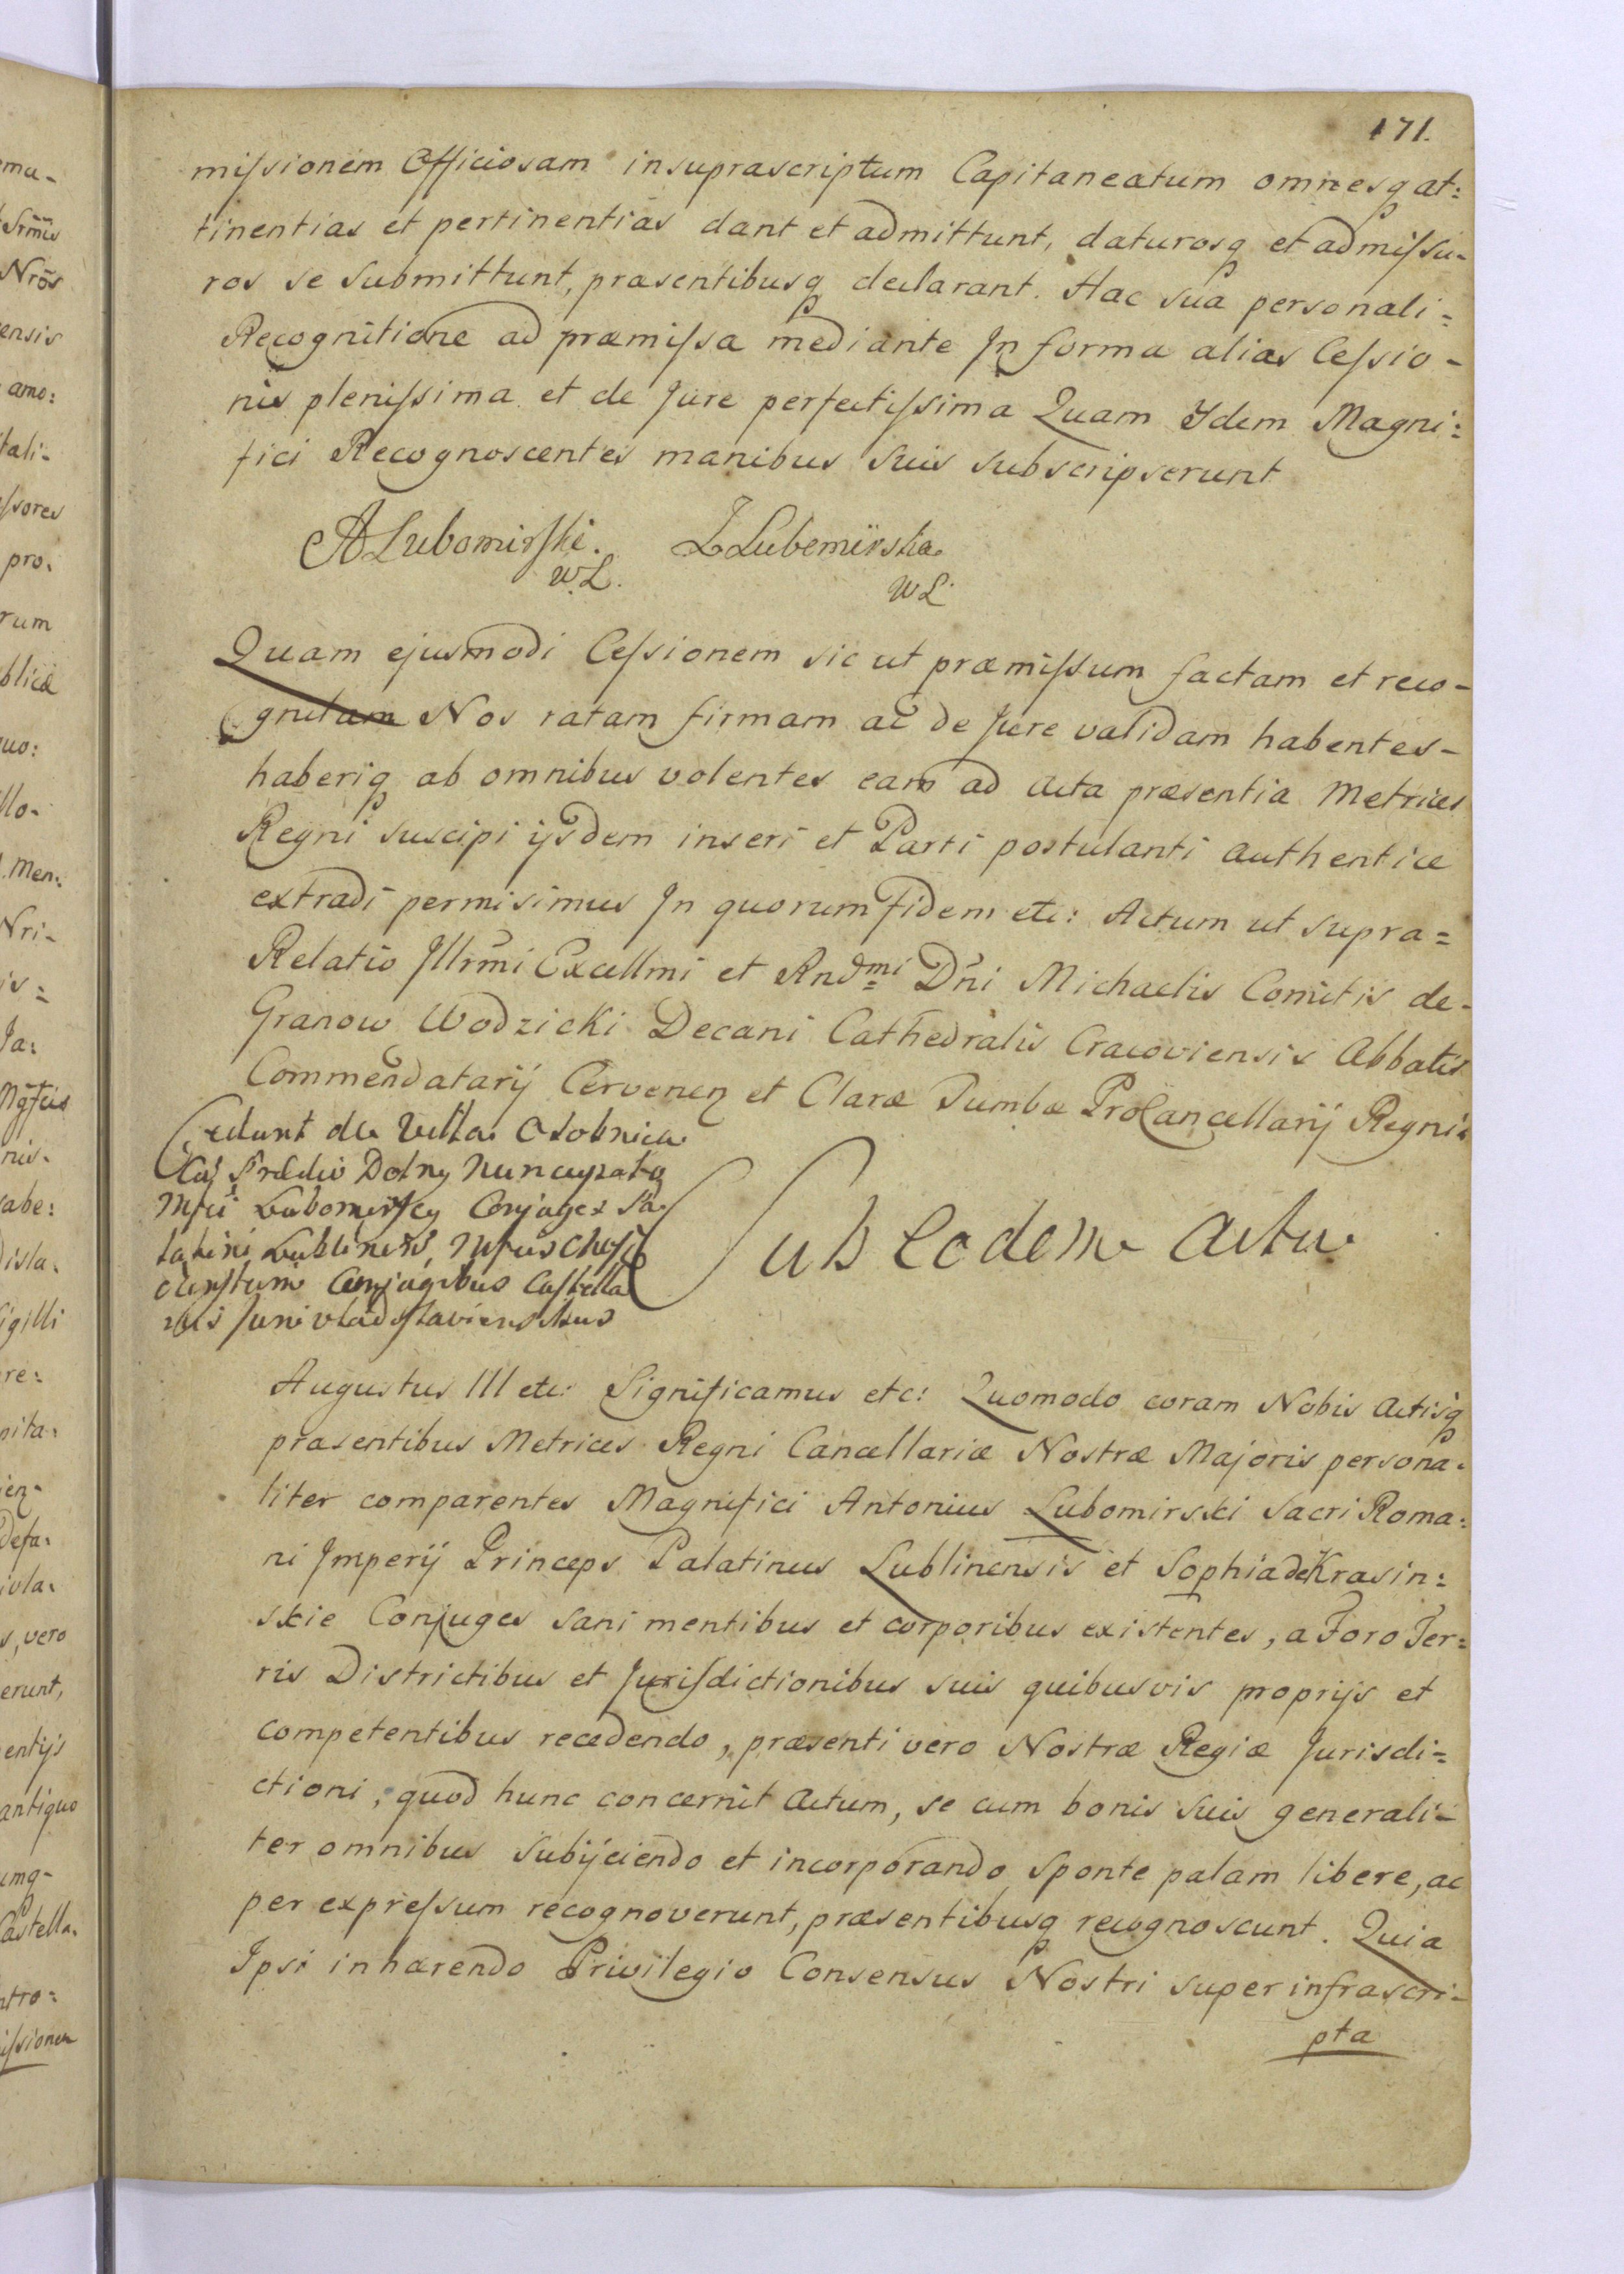 171.
missionem Officiosam in suprascriptum Capitaneatum omnesq at:
tinentias et pertinentias dant et admittunt, daturosq et admissu-
ros se submittunt, præsentibusq declarant. Hac sua personali=
Recognitione ad præmissa mediante In forma alias Cessio-
nis plenissima et de Jure perfectissima Quam Ydem Magni:
fici Recognoscentes manibus suis subscripserunt
A Lubomirski. Z Lubomirska
W.L. WL
Quam ejusmodi Cessionem sic ut præmissum factam et reco-
gnitam Nos ratam firmam ac de Jure validam habentes-
haberiq ab omnibus volentes eam ad Acta præsentia Metrices
Regni suscipi ijsdem inseri et Parti postulanti authentice
extradi permisimus In quorum fidem etc: Actum ut supra=
Relatio Jllrmi Excellmi et Rndmi Dni Michaelis Comitis de-
Granow Wodzicki Decani Cathedralis Cracoviensis Abbatis
Commendatarij Cervenen et Claræ Tumbæ ProCancellarij Regni.
Cedunt de Villa Osobnica
Prædio Dolny nuncupato
Mfci Lubomirscy Conjuges Pa
latini Lublinens, Mfcis
Conjugibus Castella
nis Juni vladislaviensibus
Sub Eodem Actu
Augustus III etc: Significamus etc: Quomodo coram Nobis Actisq
præsentibus Metrices Regni Cancellariæ Nostræ Majoris persona-
liter comparentes Magnifici Antonius Lubomirski Sacri Roma:
ni Jmperij Princeps Palatinus Lublinensis et Sophia de Krasin:
skie Conjuges sani mentibus et corporibus existentes, a Foro Ter=
ris Districtibus et Jurisdictionibus suis quibusvis proprijs et
competentibus recedendo, præsenti vero Nostræ Regiæ Jurisdi=
ctioni, quod hunc concernit Actum, se cum bonis suis generali-
ter omnibus subijciendo et incorporando sponte palam libere, ac
per expressum recognoverunt, præsentibusq recognoscunt. Quia
Ipsi inhærendo Privilegio Consensus Nostri super infrascri-
pta